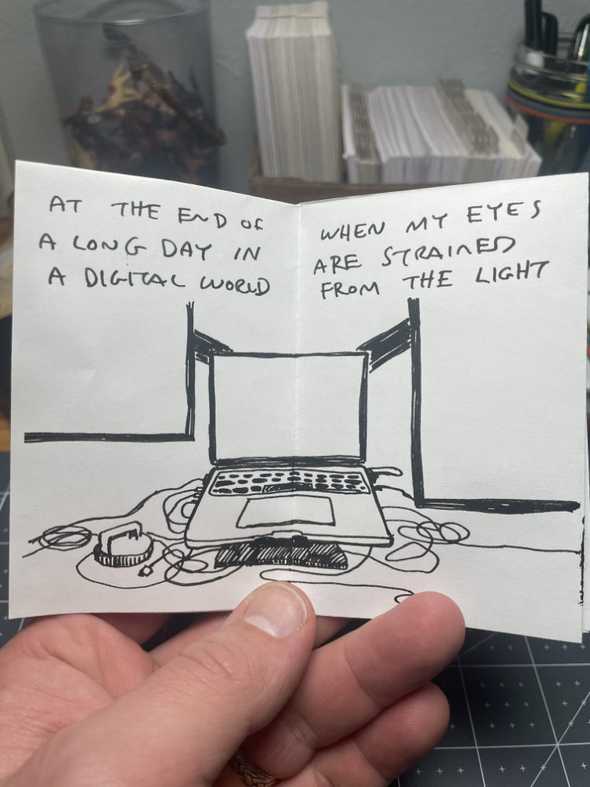 AT THE END OF
A LONG DAY IN
A DIGITAL WORLD
WHEN MY EYES
ARE STRAINED
FROM THE LIGHT